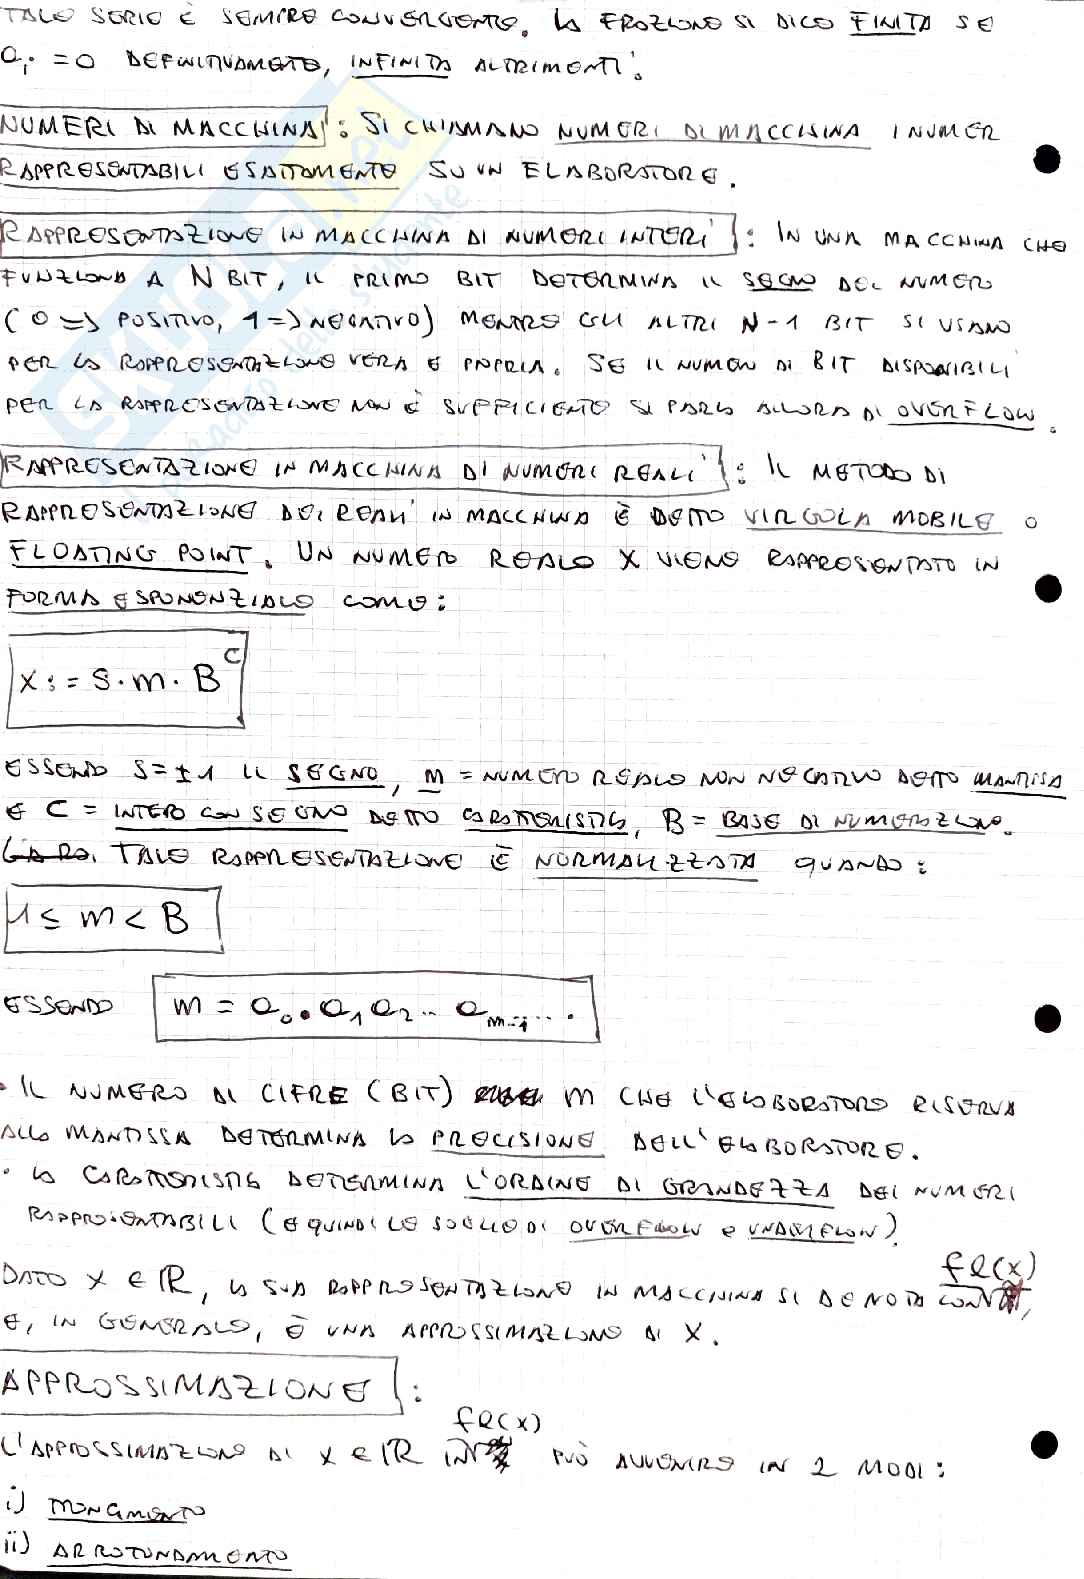 TALE SERIE È SEMPRE CONVERGENTE. LA FRAZIONE SI DICE FINITA SE
ai = 0 DEFINITIVAMENTE, INFINITA ALTRIMENTI.
NUMERI DI MACCHINA: SI CHIAMANO NUMERI DI MACCHINA I NUMER
RAPPRESENTABILI ESATTAMENTE SU UN ELABORATORE.
RAPPRESENTAZIONE IN MACCHINA DI NUMERI INTERI: IN UNA MACCHINA CHE
FUNZIONA A N BIT, IL PRIMO BIT DETERMINA IL SEGNO DEL NUMERO
(0 => POSITIVO, 1 => NEGATIVO) MENTRE GLI ALTRI N-1 BIT SI USANO
PER LA RAPPRESENTAZIONE VERA E PROPRIA. SE IL NUMERO DI BIT DISPONIBILI
PER LA RAPPRESENTAZIONE NON È SUFFICIENTE SI PARLA ALLORA DI OVERFLOW.
RAPPRESENTAZIONE IN MACCHINA DI NUMERI REALI: IL METODO DI
RAPPRESENTAZIONE DEI REALI IN MACCHINA È DETTO VIRGOLA MOBILE O
FLOATING POINT. UN NUMERO REALE X VIENE RAPPRESENTATO IN
FORMA ESPONENZIALE COME:
X := S·m·B^C
ESSENDO S=±1 IL SEGNO, m = NUMERO REALE NON NEGATIVO DETTO MANTISSA
E C = INTERO CON SEGNO DETTO CARATTERISTICA, B = BASE DI NUMERAZIONE.
TALE RAPPRESENTAZIONE È NORMALIZZATA QUANDO:
1 ≤ m < B
ESSENDO m = a0.a1a2...am-1....
· IL NUMERO DI CIFRE (BIT) m CHE L'ELABORATORE RISERVA
ALLA MANTISSA DETERMINA LA PRECISIONE DELL'ELABORATORE.
· LA CARATTERISTICA DETERMINA L'ORDINE DI GRANDEZZA DEI NUMERI
RAPPRESENTABILI (E QUINDI LE SOGLIE DI OVERFLOW E UNDERFLOW).
DATO X ∈ ℝ, LA SUA RAPPRESENTAZIONE IN MACCHINA SI DENOTA CON fl(x),
E, IN GENERALE, È UNA APPROSSIMAZIONE DI X.
APPROSSIMAZIONE:
L'APPROSSIMAZIONE DI X ∈ ℝ IN fl(x) PUÒ AVVENIRE IN 2 MODI:
i) TRONCAMENTO
ii) ARROTONDAMENTO